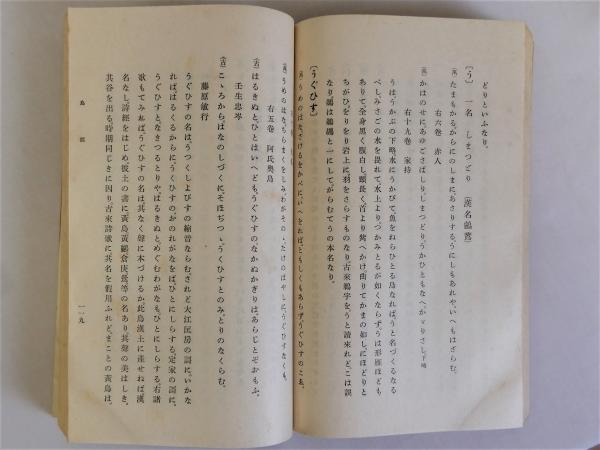 どりといふなり。
〔う〕 一名 しまつどり 〔漢名鸕鷀〕
たまもかるからにのしまに、あさりする、うにしもあれや、いへもはざらむ。
右六巻 赤人
かはのせに、あゆごさばしり、しまつどり、うかひともなへ、かゞりさし、下略
右十九巻 家持
うは、うかぶの下略、水にうかびて、魚をねらひとる鳥なれば、うと名づくるなる
べし、みさごの水を畏れて、水上よりつかみとるが如くならず、うは形雁ほども
ありて、全身黒く腹白し、頸長く、首より觜へかけ曲りて、かまの如し、にほどりと
ちがひ、をりをり岩上に、羽をさらすものなり、古來鵜字をうと讀來れど、こは誤
なり、鵜は鵜鶘と一にして、がらむてうの本名なり。
〔うぐひす〕
うめのはな、さけるをかべに、いへをれば、ともしくもあらず、うぐひすのこゑ。
うめのはな、ちらまくをしみ、わがそのゝ、たけのはやしに、うぐひすなくも。
右五巻 阿氏奥島
はるきぬと、ひとはいへども、うぐひすの、なかぬかぎりは、あらじとぞおもふ。
壬生忠岑
こゝろから、はなのしづくに、そほぢつゝ、うくひすとのみ、とりのなくらむ。
藤原敏行
うぐひすの名は、うつくしよびすの縮音ならむ、されど大江匡房の謌に、いかな
れば、はるくるからに、うぐひすの、おのれがなをば、ひとにしらする、定家の謌に、
うぐひすと、なきつるとりや、はるきぬと、めぐむわかなも、ひとにしらする、右諸
歌もてみれば、うぐひすの名は、其なく聲に本づけるか、此鳥漢土に産せねば、漢
名なし、詩經をはじめ、彼土の書に、黄鳥、黄鸝、倉庚、鶯等の名あり、其聲の美はしき、
其谷を出る、時期同じきに因り、古來詩歌に其名を假用ふれど、まことの黄鳥は、
鳥部
一一九